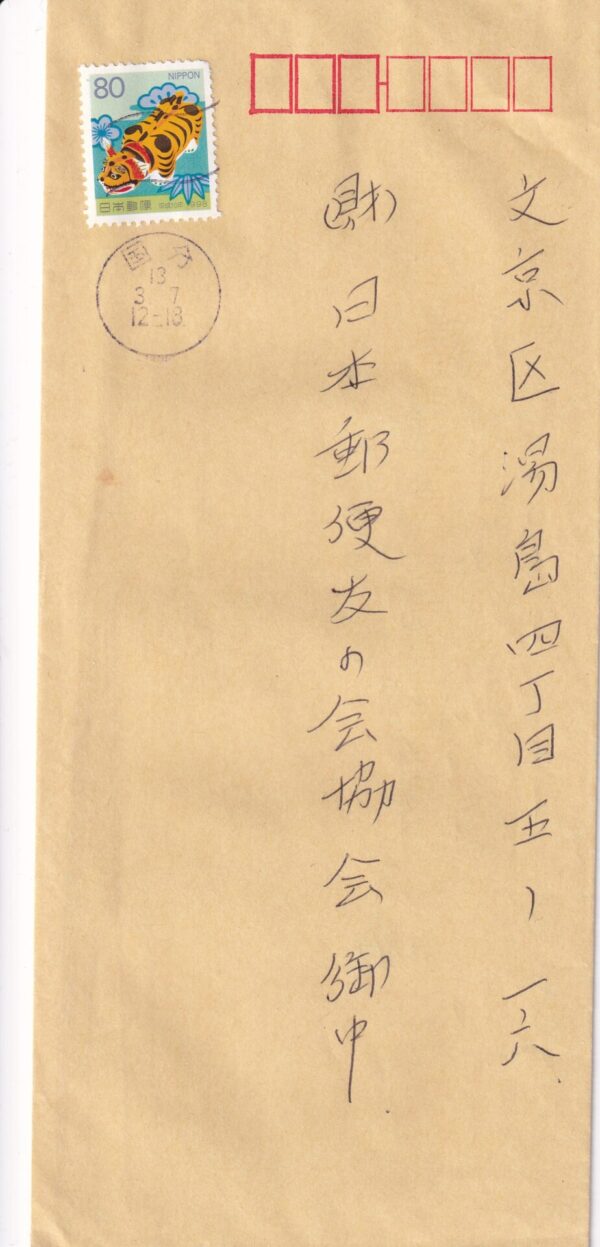 文京区湯島四丁目五ノ一六
財 日本郵便友の会協会 御中
80 NIPPON
日本郵便 平成10年 1998
国分
13
3 7
12-18